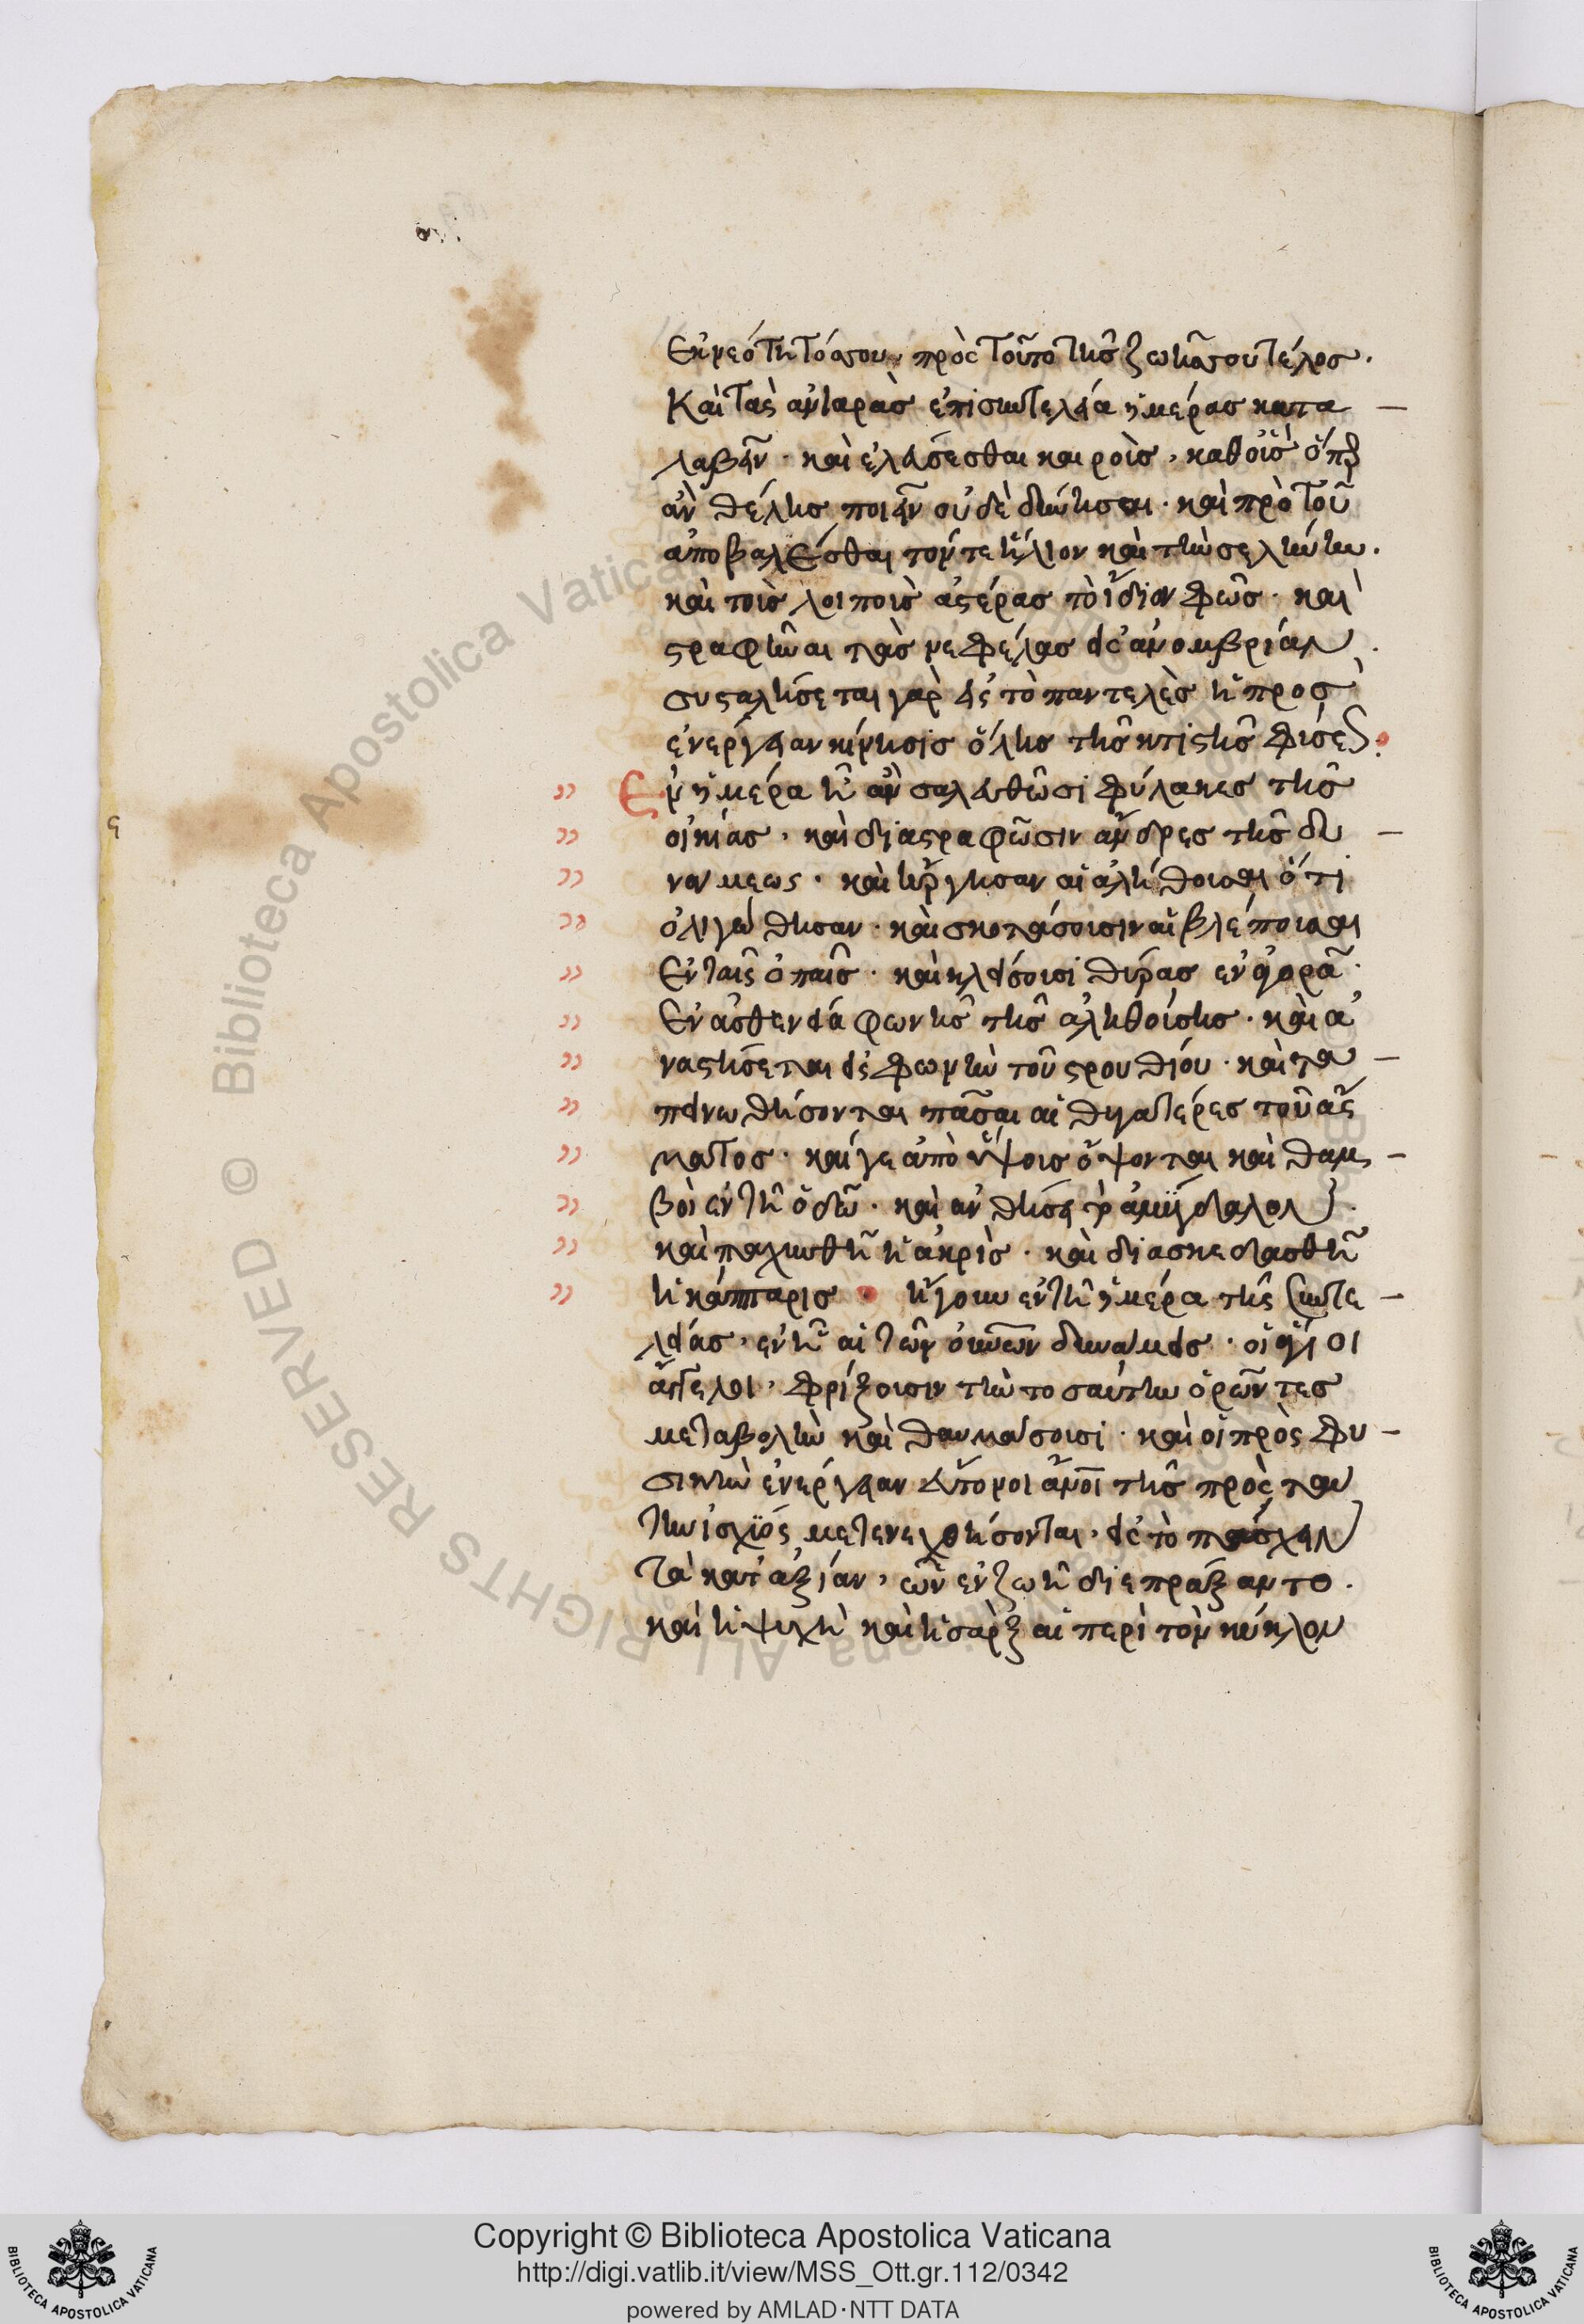 ἐν νεότητός σου, πρὸς τοῦτο τῆς ζωῆς σου τέλος.
Καὶ τὰς ἀνιαρὰς ἐπὶ συντελεία ἡμέρας κατα
λαβεῖν · καὶ ἐλεύσεσθαι καιροὺς, καθ οἷς ὅπερ
ἂν θέλης ποιεῖν οὐδὲ δυνήσει · καὶ πρὸ τοῦ
ἀποβαλέσθαι τόν τε ἥλιον καὶ τὴν σελήνην.
καὶ τοὺς λοιποὺς ἀστέρας τὸ ἴδιον φῶς · καὶ
στραφῆναι τὰς νεφέλας εἰς ἀνομβρίαν.
συσταλήσεται γὰρ εἰς τὸ παντελὲς ἡ πρὸς
ἐνέργειαν κίνησις ὅλης τῆς κτιστῆς φύσεως.
Ἐν ἡμέρα ἧ ἂν σαλευθῶσι φύλακες τῆς
οἰκίας, καὶ διαστραφῶσιν ἄνδρες τῆς δυ
νάμεως. καὶ ἤργησαν αἱ ἀλήθουσαι ὅτι
ὀλιγώθησαν · καὶ σκοτάσουσιν αἱ βλέπουσαι
ἐν ταῖς ὀπαῖς · καὶ κλείσουσι θύρας ἐν ἀγορᾶ.
ἐν ἀσθενεία φωνῆς τῆς ἀληθούσης · καὶ ἀ
ναστήσεται εἰς φωνὴν τοῦ στρουθίου · καὶ τα
πεινωθήσονται πᾶσαι αἱ θυγατέρες τοῦ ἄσ
ματος · καί γε ἀπὸ ὕψους ὄψονται καὶ θάμ
βοι ἐν τῆ ὁδῶ · καὶ ἀνθήσει τὸ ἀμύγδαλον.
καὶ παχυνθῆ ἡ ἀκρὶς · καὶ διασκεδασθῆ
ἡ κάππαρις · ἤγουν ἐν τῆ ἡμέρα τῆς συντε
λείας, ἐν ἧ αἱ τῶν οὐρανῶν δυνάμεις · οἱ ἅγιοι
ἄγγελοι, φρίξουσιν τὴν τοσαύτην ὁρῶντες
μεταβολὴν καὶ θαυμάσουσι · καὶ οἱ πρὸς φυ
σικὴν ἐνέργειαν εὔτονοι ἄνοι τῆς πρὸς ταύ
την ἰσχύος μετενεχθήσονται, εἰς τὸ πάσχειν
τὰ κατ ἀξίαν, ὧν ἐν ζωῆ διεπράξαντο.
καὶ ἡ ψυχὴ καὶ ἡ σὰρξ αἱ περὶ τὸν κύκλον
Copyright © Biblioteca Apostolica Vaticana
http://digi.vatlib.it/view/MSS_Ott.gr.112/0342
powered by AMLAD·NTT DATA
BIBLIOTECA APOSTOLICA VATICANA
BIBLIOTECA APOSTOLICA VATICANA